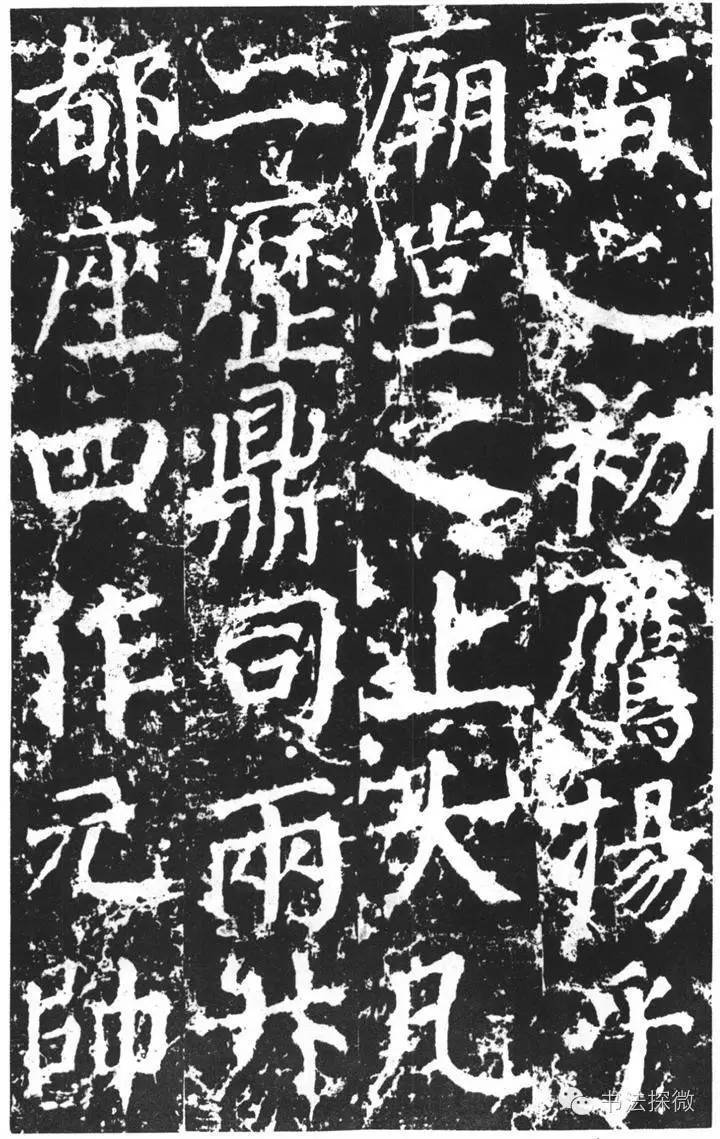 雷之初鷹揚乎
廟堂之上矣凡
二歷鼎司兩升
都座四作元帥
书法探微